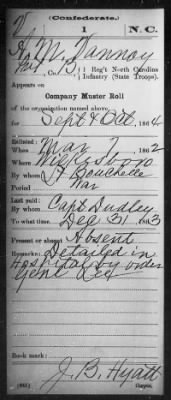 (Confederate.)
V 1 N.C.
H. M. Vannoy
Pvt, Co. B, 1 Reg't North Carolina
Infantry (State Troops).
Appears on
Company Muster Roll
of the organization named above,
for Sept & Oct, 1864
Enlisted:
When Mar 7, 1862
Where Wilkesboro
By whom Lt Bouchelle
Period War
Last paid:
By whom Capt Dudley
To what time Dec 31, 1863
Present or absent Absent
Remarks: Detailed in
Hospital by order
Genl Lee
Book mark:
J. B. Hyatt
Copyist.